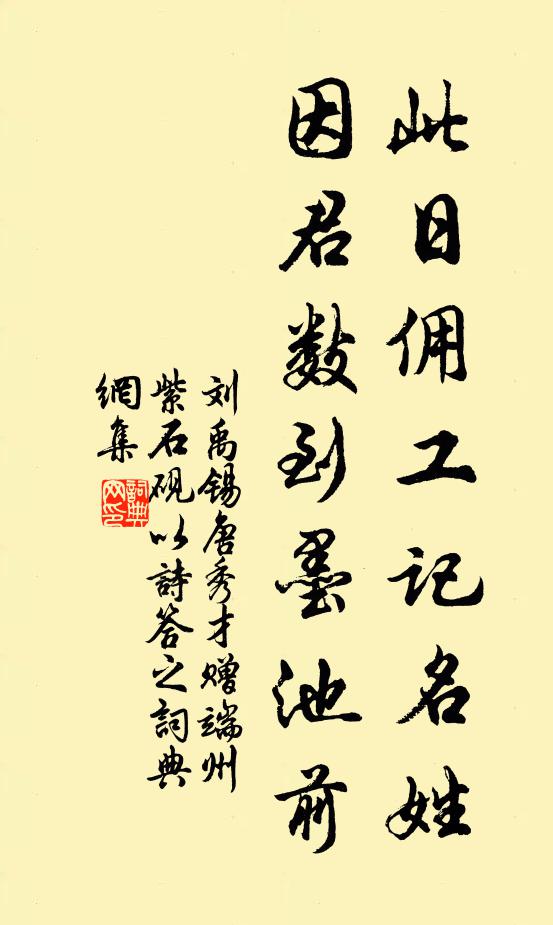 此日佣工记名姓
因君数到墨池前
刘禹锡唐秀才赠端州
紫石砚以诗答之词典
網集
詞典
网印